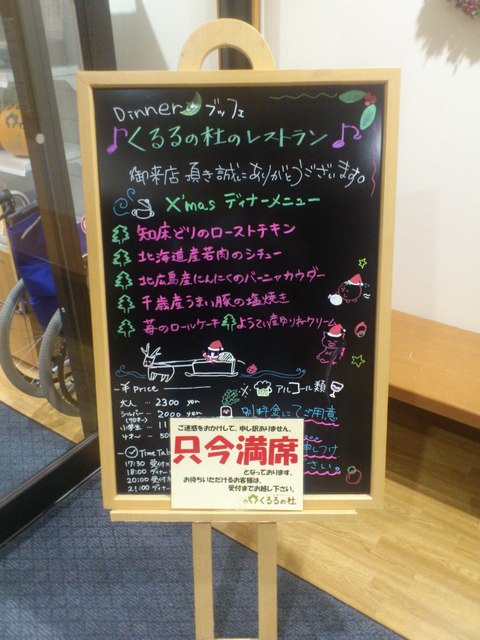 Dinner ブッフェ
くるるの杜のレストラン
御来店頂き誠にありがとうございます。
X'mas ディナーメニュー
知床どりのローストチキン
北海道産若肉のシチュー
北広島産にんにくのバーニャカウダー
千歳産うまい豚の塩焼き
苺のロールケーキ ようてい産ゆり根クリーム
Price
大人 … 2300 yen
シルバー … 2000 yen
小学生 … 11
4才~ … 50
アルコール類
別料金にてご用意
申しつけ
さい。
Time Tab
17:30 受付
18:00 ディナー
20:00 受付
21:00 ディナ
ご迷惑をおかけして、申し訳ありません。
只今満席
となっております。
お待ちいただけるお客様は、
受付までお越し下さい。
くるるの杜